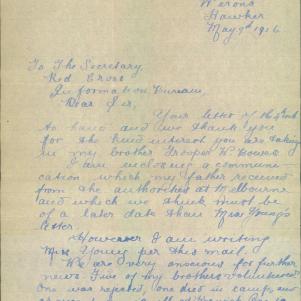 Werona
Hawker
May 9th 1916
To The Secretary,
Red Cross
Information Bureau,
Dear Sir,
Your letter of the 4th inst
to hand and we thank you
for the kind interest you are taking
in my brother Trooper
I am enclosing a communi-
cation which my father received
from the authorities at Melbourne
and which we think must be
of a later date than Miss Young's
letter.
However I am writing
Miss Young per this mail.
We are very anxious for further
news. Five of my brothers volunteered
One was rejected, one died in camp, and